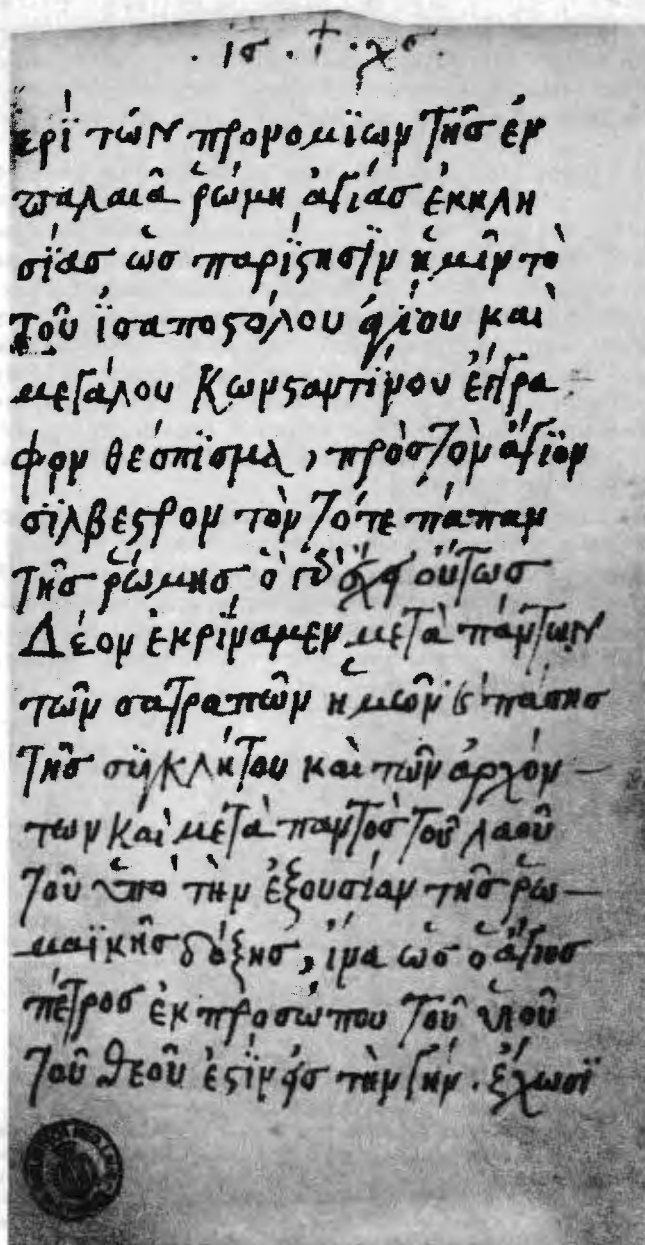 · ἰσ · † · χσ ·
ερὶ τῶν προνομίων τῆσ ἐν
παλαιᾶ ῥώμη ἁγίασ ἐκκλη
σίασ ὡσ παρίστησϊν ἡμῖν τὸ
τοῦ ἰσαποστόλου ἁγίου καὶ
μεγάλου Κωνσταντίνου ἔγγρα
φον θέσπισμα, πρὸσ τὸν ἅγιον
σίλβεστρον τὸν τότε πάπαν
τῆσ ῥώμησ οὕτωσ
Δέον ἐκρίναμεν μετὰ πάντων
τῶν σατραπῶν ἡμῶν ϗ πάσησ
τῆσ συγκλήτου καὶ τῶν ἀρχόν –
των καὶ μετὰ παντὸσ τοῦ λαοῦ
τοῦ ὑπὸ τὴν ἐξουσίαν τῆσ ῥω –
μαϊκῆσ δόξησ, ἵνα ὡσ ὁ ἅγιοσ
πέτροσ ἐκ προσώπου τοῦ υἱοῦ
τοῦ θεοῦ τὴν γῆν · ἔχωσϊ